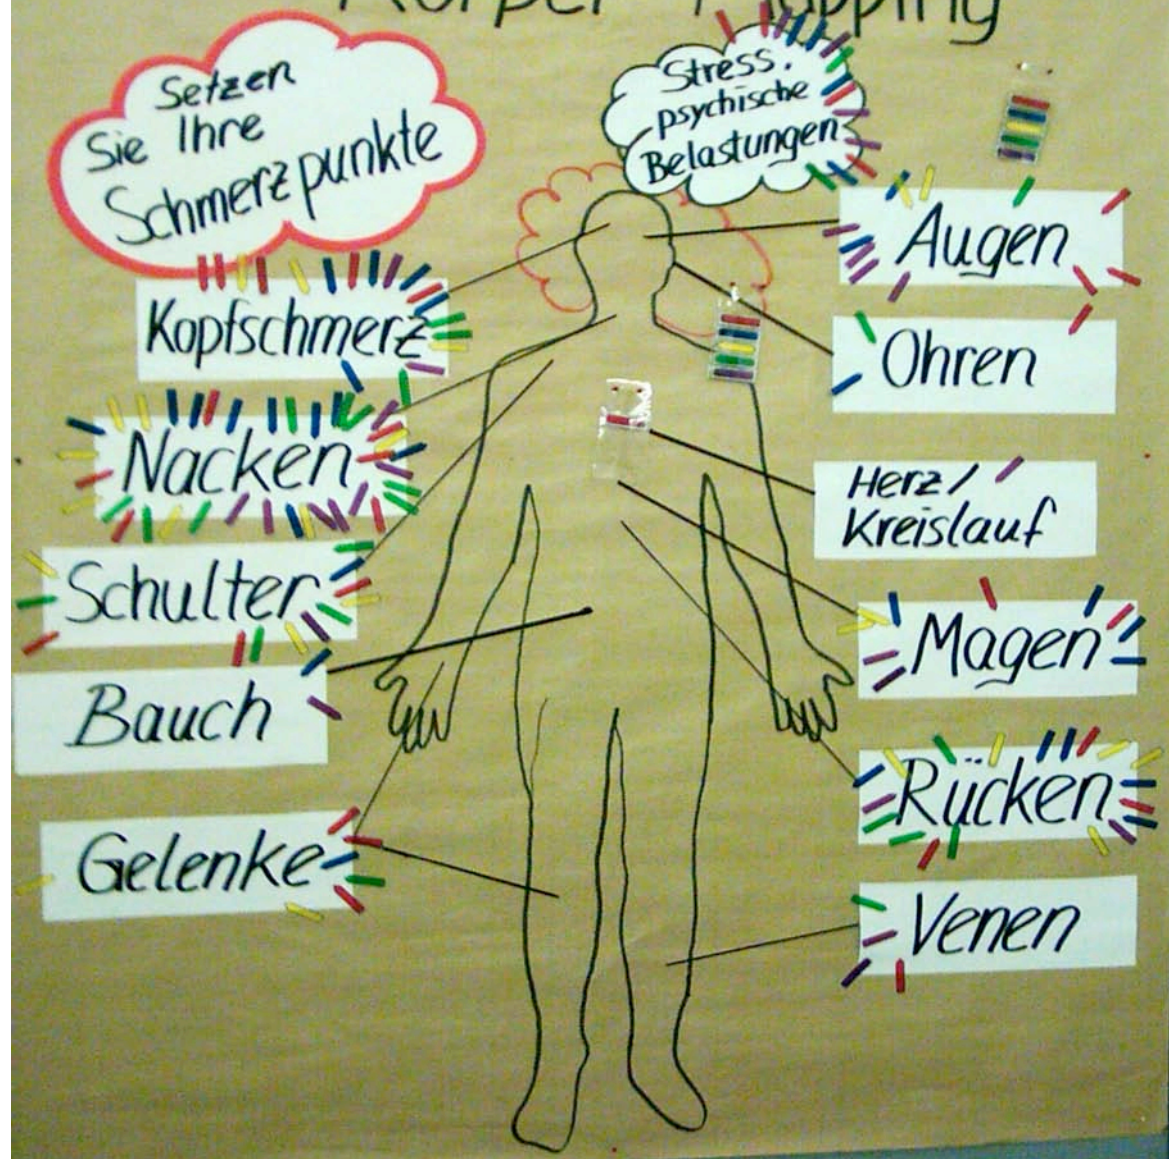 Körper Mapping
Setzen
Sie Ihre
Schmerzpunkte
Stress.
psychische
Belastungen
Kopfschmerz
Nacken
Schulter
Bauch
Gelenke
Augen
Ohren
Herz/
Kreislauf
Magen
Rücken
Venen